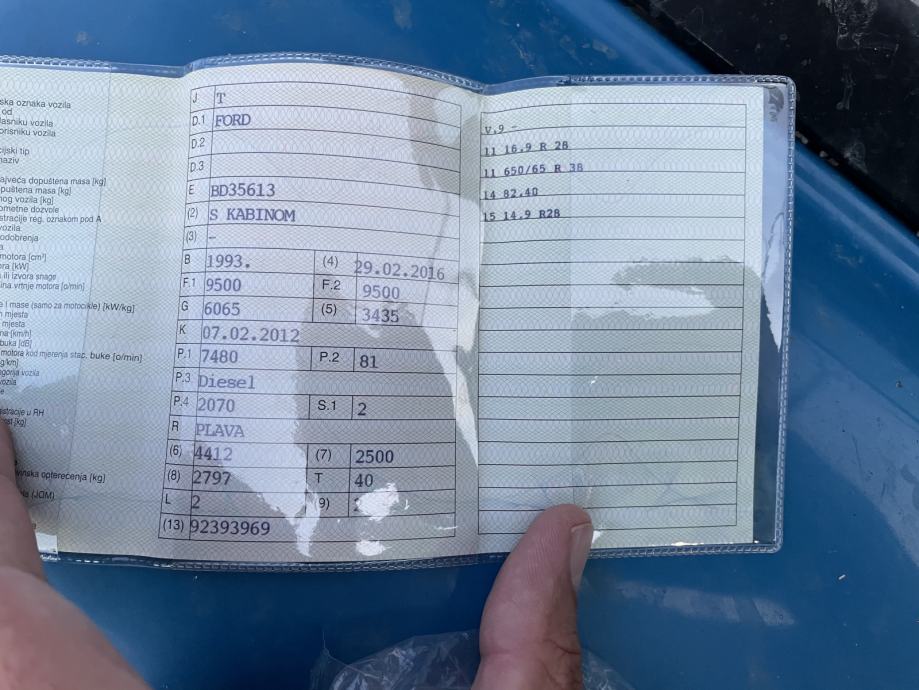 ska oznaka vozila
od
lasniku vozila
orisniku vozila
cijski tip
naziv
ajveća dopuštena masa [kg]
puštena masa [kg]
nog vozila [kg]
ometne dozvole
stracije reg. oznakom pod A
vozila
odobrenja
a
motora [cm³]
ora [kW]
ili izvora snage
ina vrtnje motora [o/min]
e i mase (samo za motocikle) [kW/kg]
h mjesta
mjesta
na [km/h]
buka [dB]
motora kod mjerenja stac. buke [o/min]
g/km]
gorija vozila
vozila
e
stracije u RH
ost [kg]
vinska opterećenja [kg]
la (JOM)
J T
D.1 FORD
D.2
D.3
E BD35613
(2) S KABINOM
(3) -
B 1993. (4) 29.02.2016
F.1 9500 F.2 9500
G 6065 (5) 3435
K 07.02.2012
P.1 7480 P.2 81
P.3 Diesel
P.4 2070 S.1 2
R PLAVA
(6) 4412 (7) 2500
(8) 2797 T 40
L 2 (9)
(13) 92393969
V.9 -
11 16.9 R 28
11 650/65 R 38
14 82.40
15 14.9 R28